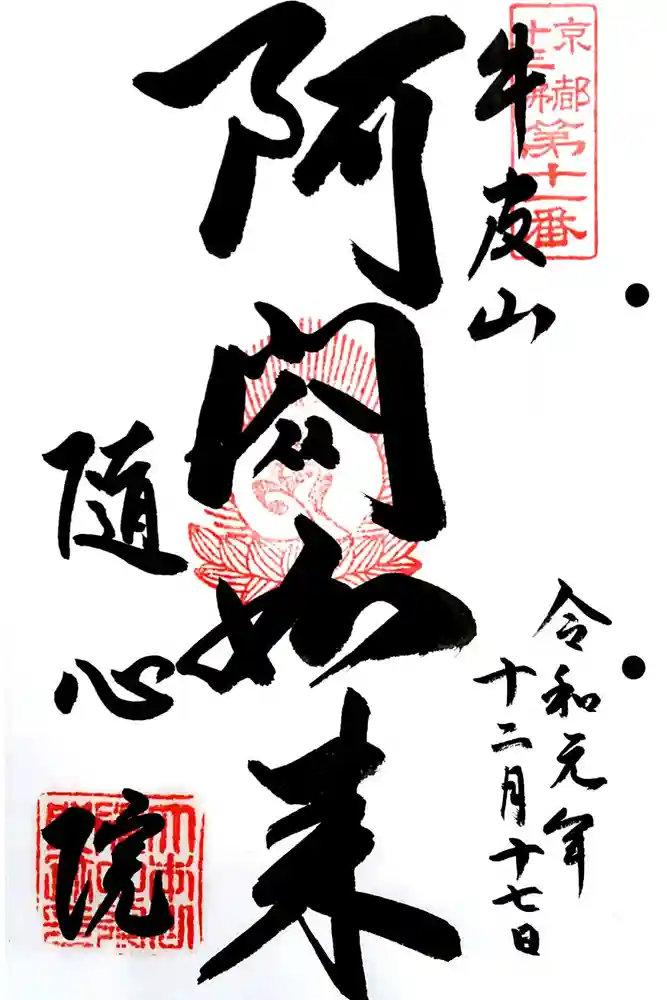 京都
十三佛
第十一番
牛皮山
令和元年
十二月十七日
阿閦如来
随心院